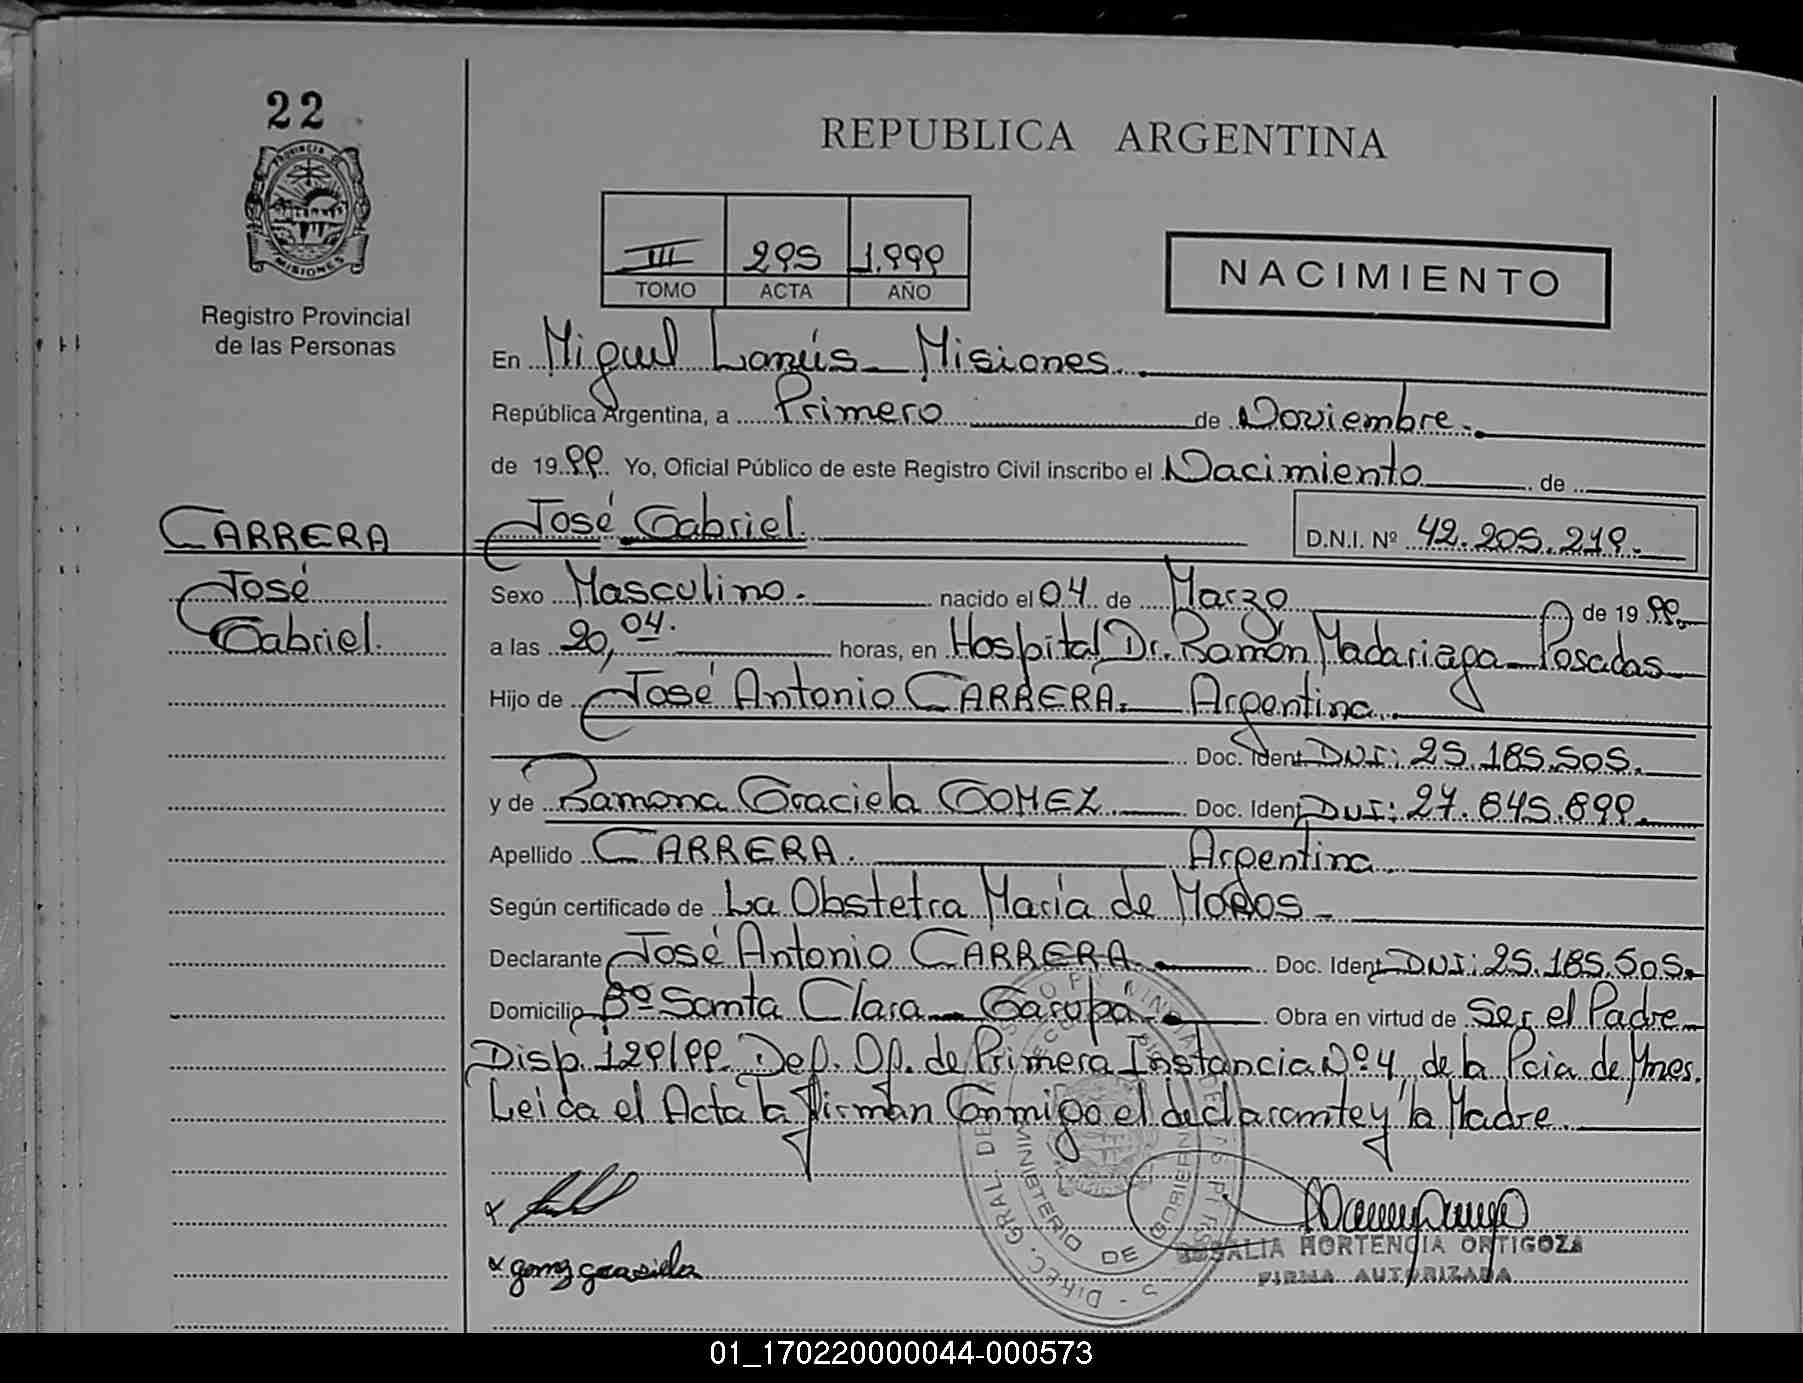 22
PROVINCIA DE
MISIONES
Registro Provincial
de las Personas
REPUBLICA ARGENTINA
III 295 1.999
TOMO ACTA AÑO
NACIMIENTO
En Miguel Lanús - Misiones.
República Argentina, a Primero de Noviembre.
de 19 99. Yo, Oficial Público de este Registro Civil inscribo el Nacimiento de
CARRERA José Gabriel. D.N.I. Nº 42.205.219.
José
Gabriel.
Sexo Masculino. nacido el 04 de Marzo de 19 99.
a las 20,04. horas, en Hospital Dr. Ramón Madariaga - Posadas
Hijo de José Antonio CARRERA. Argentina.
Doc. Ident. DNI: 25.185.505.
y de Ramona Graciela GOMEZ. Doc. Ident. DNI: 27.645.699.
Apellido CARRERA. Argentina.
Según certificado de La Obstetra María de
Declarante José Antonio CARRERA. Doc. Ident. DNI: 25.185.505.
Domicilio Bº Santa Clara - Garupa. Obra en virtud de Ser el Padre
Disp. 129/99. Def. Of. de Primera Instancia Nº 4, de la Pcia de Mnes.
Leida el Acta la firman Conmigo el declarante y la Madre.
MINISTERIO DE GOBIERNO
DIREC. GRAL. DE
x
x gomez graciela
ROSALIA HORTENCIA ORTIGOZA
FIRMA AUTORIZADA
01_170220000044-000573